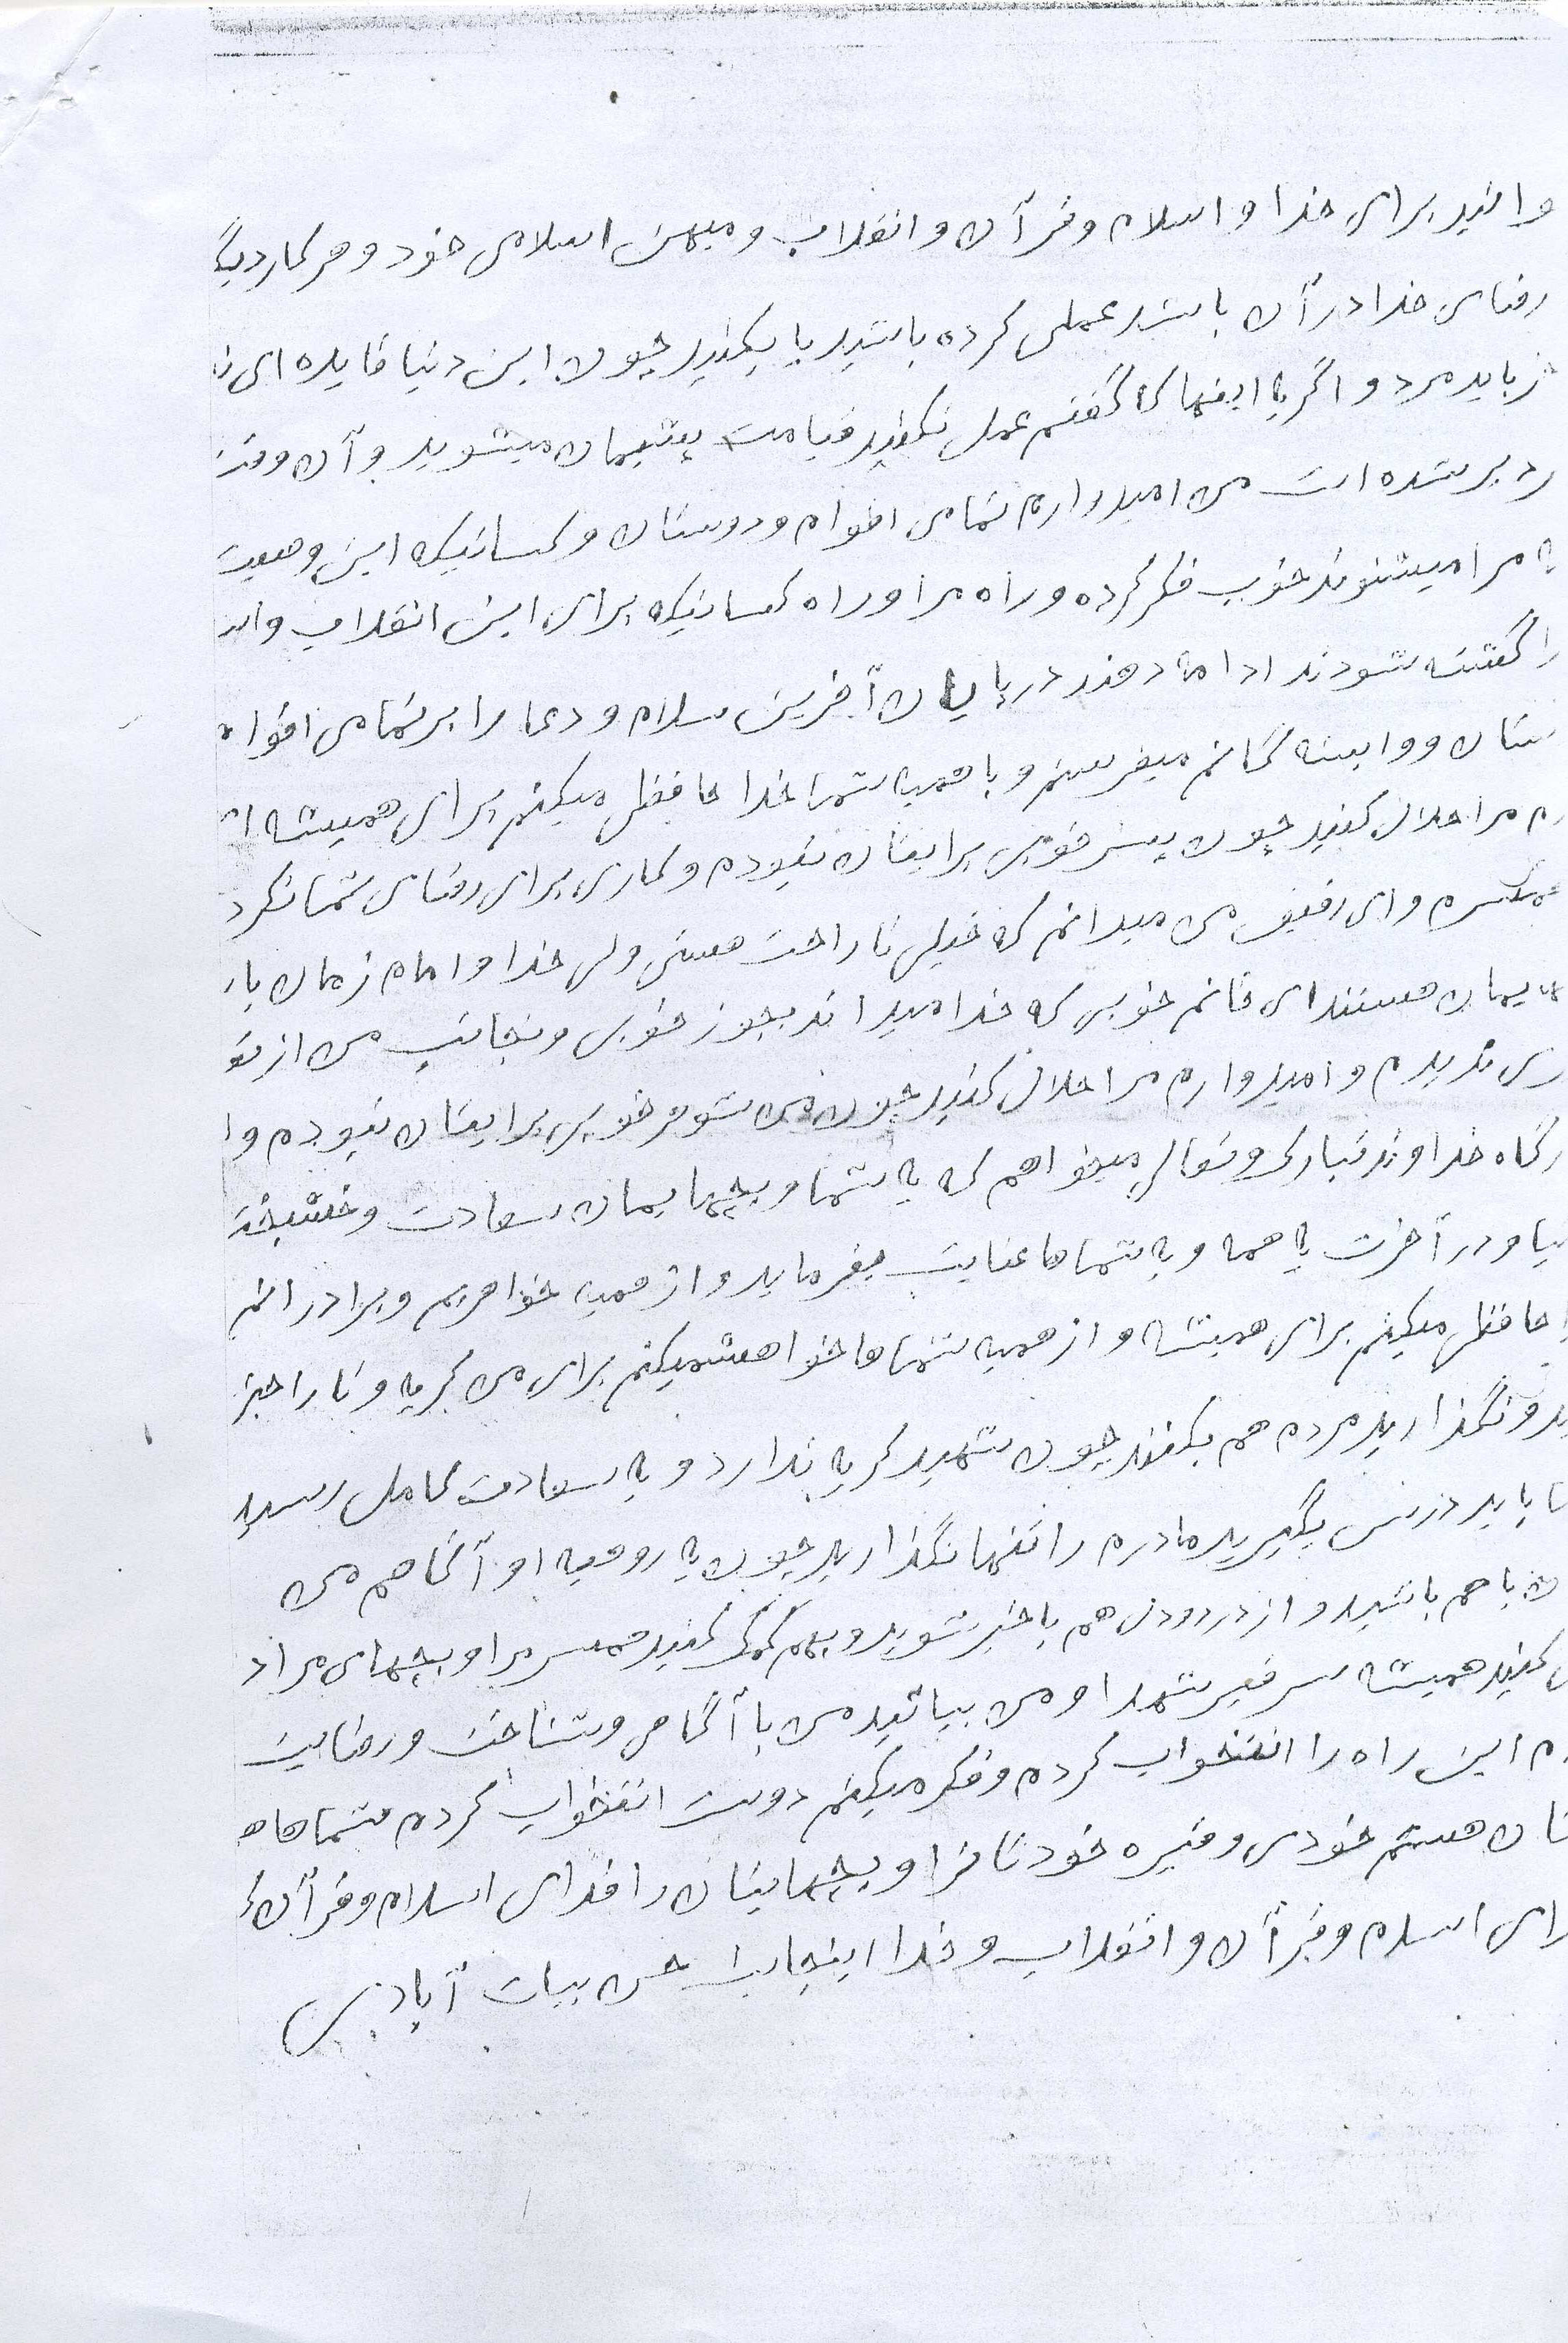 وانید برای خدا و اسلام و قرآن و انقلاب و میهن اسلامی خود و هر کار دیگ
رضای خدا در آن باشد عملی کرده باشید یا بکنید چون این دنیا فایده ای ن
باید مرد و اگر به اینها که گفتم عمل نکنید قیامت پشیمان میشوید و آن وقت
دیر شده است من امیدوارم تمامی اقوام و دوستان و کسانیکه این وصیت
مرا میشنوند خوب فکر کرده و راه مرا و راه کسانیکه برای این انقلاب و اس
کشته شودند ادامه دهند در پایان آخرین سلام و دعا را بر تمامی اقوام
ستان و وابسته گانم میفرستم و با همیه شما خدا حافظی میکنم برای همیشه
م مرا حلال کنید چون پسر خوبی برایتان نبودم و کاری برای رضای شما نکرد
همسرم و ای رفیق من میدانم که خیلی ناراحت هستی ولی خدا و امام زمان با
یمان هستند ای خانم خوبی که خدا میداند بجوز خوبی و نجابت من از تو
ندیدم و امیدوارم مرا حلال کنید چون من شوهر خوبی برایتان نبودم و ا
رگاه خداوند تبارک و تعالی میخواهم که به شما و بچهایمان سعادت و خشبخت
یا و در آخرت به همه و به شماها عنایت بفرماید و از همیه خواهریم و برادرانم
حافظی میکنم برای همیشه و از همیه شماها خواهشمیکنم برای من گریه و ناراحتی
ید و نگذارید مردم هم بکنند چون شهید گریه ندارد و به سعادت کامل رسید
باید درس بگیرید مادرم را تنها نگذارید چون به روحیه او آگاهم من
با هم باشید و از درد و دل هم با خبر شوید و بهم کمک کنید همسر مرا و بچهای مرا د
کنید همیشه سر قبر شهدا و من بیائید من با آگاهی و شناخت و رضایت
م این راه را انتخواب کردم و فکر میکنم دوست انتخواب کردم شماهاه
تان هستم خودی و غیره خودتانرا و بچهایتان را فدای اسلام و قرآن ک
رای اسلام و قرآن و انقلاب و خدا اینجانب حسن بیات آبادی